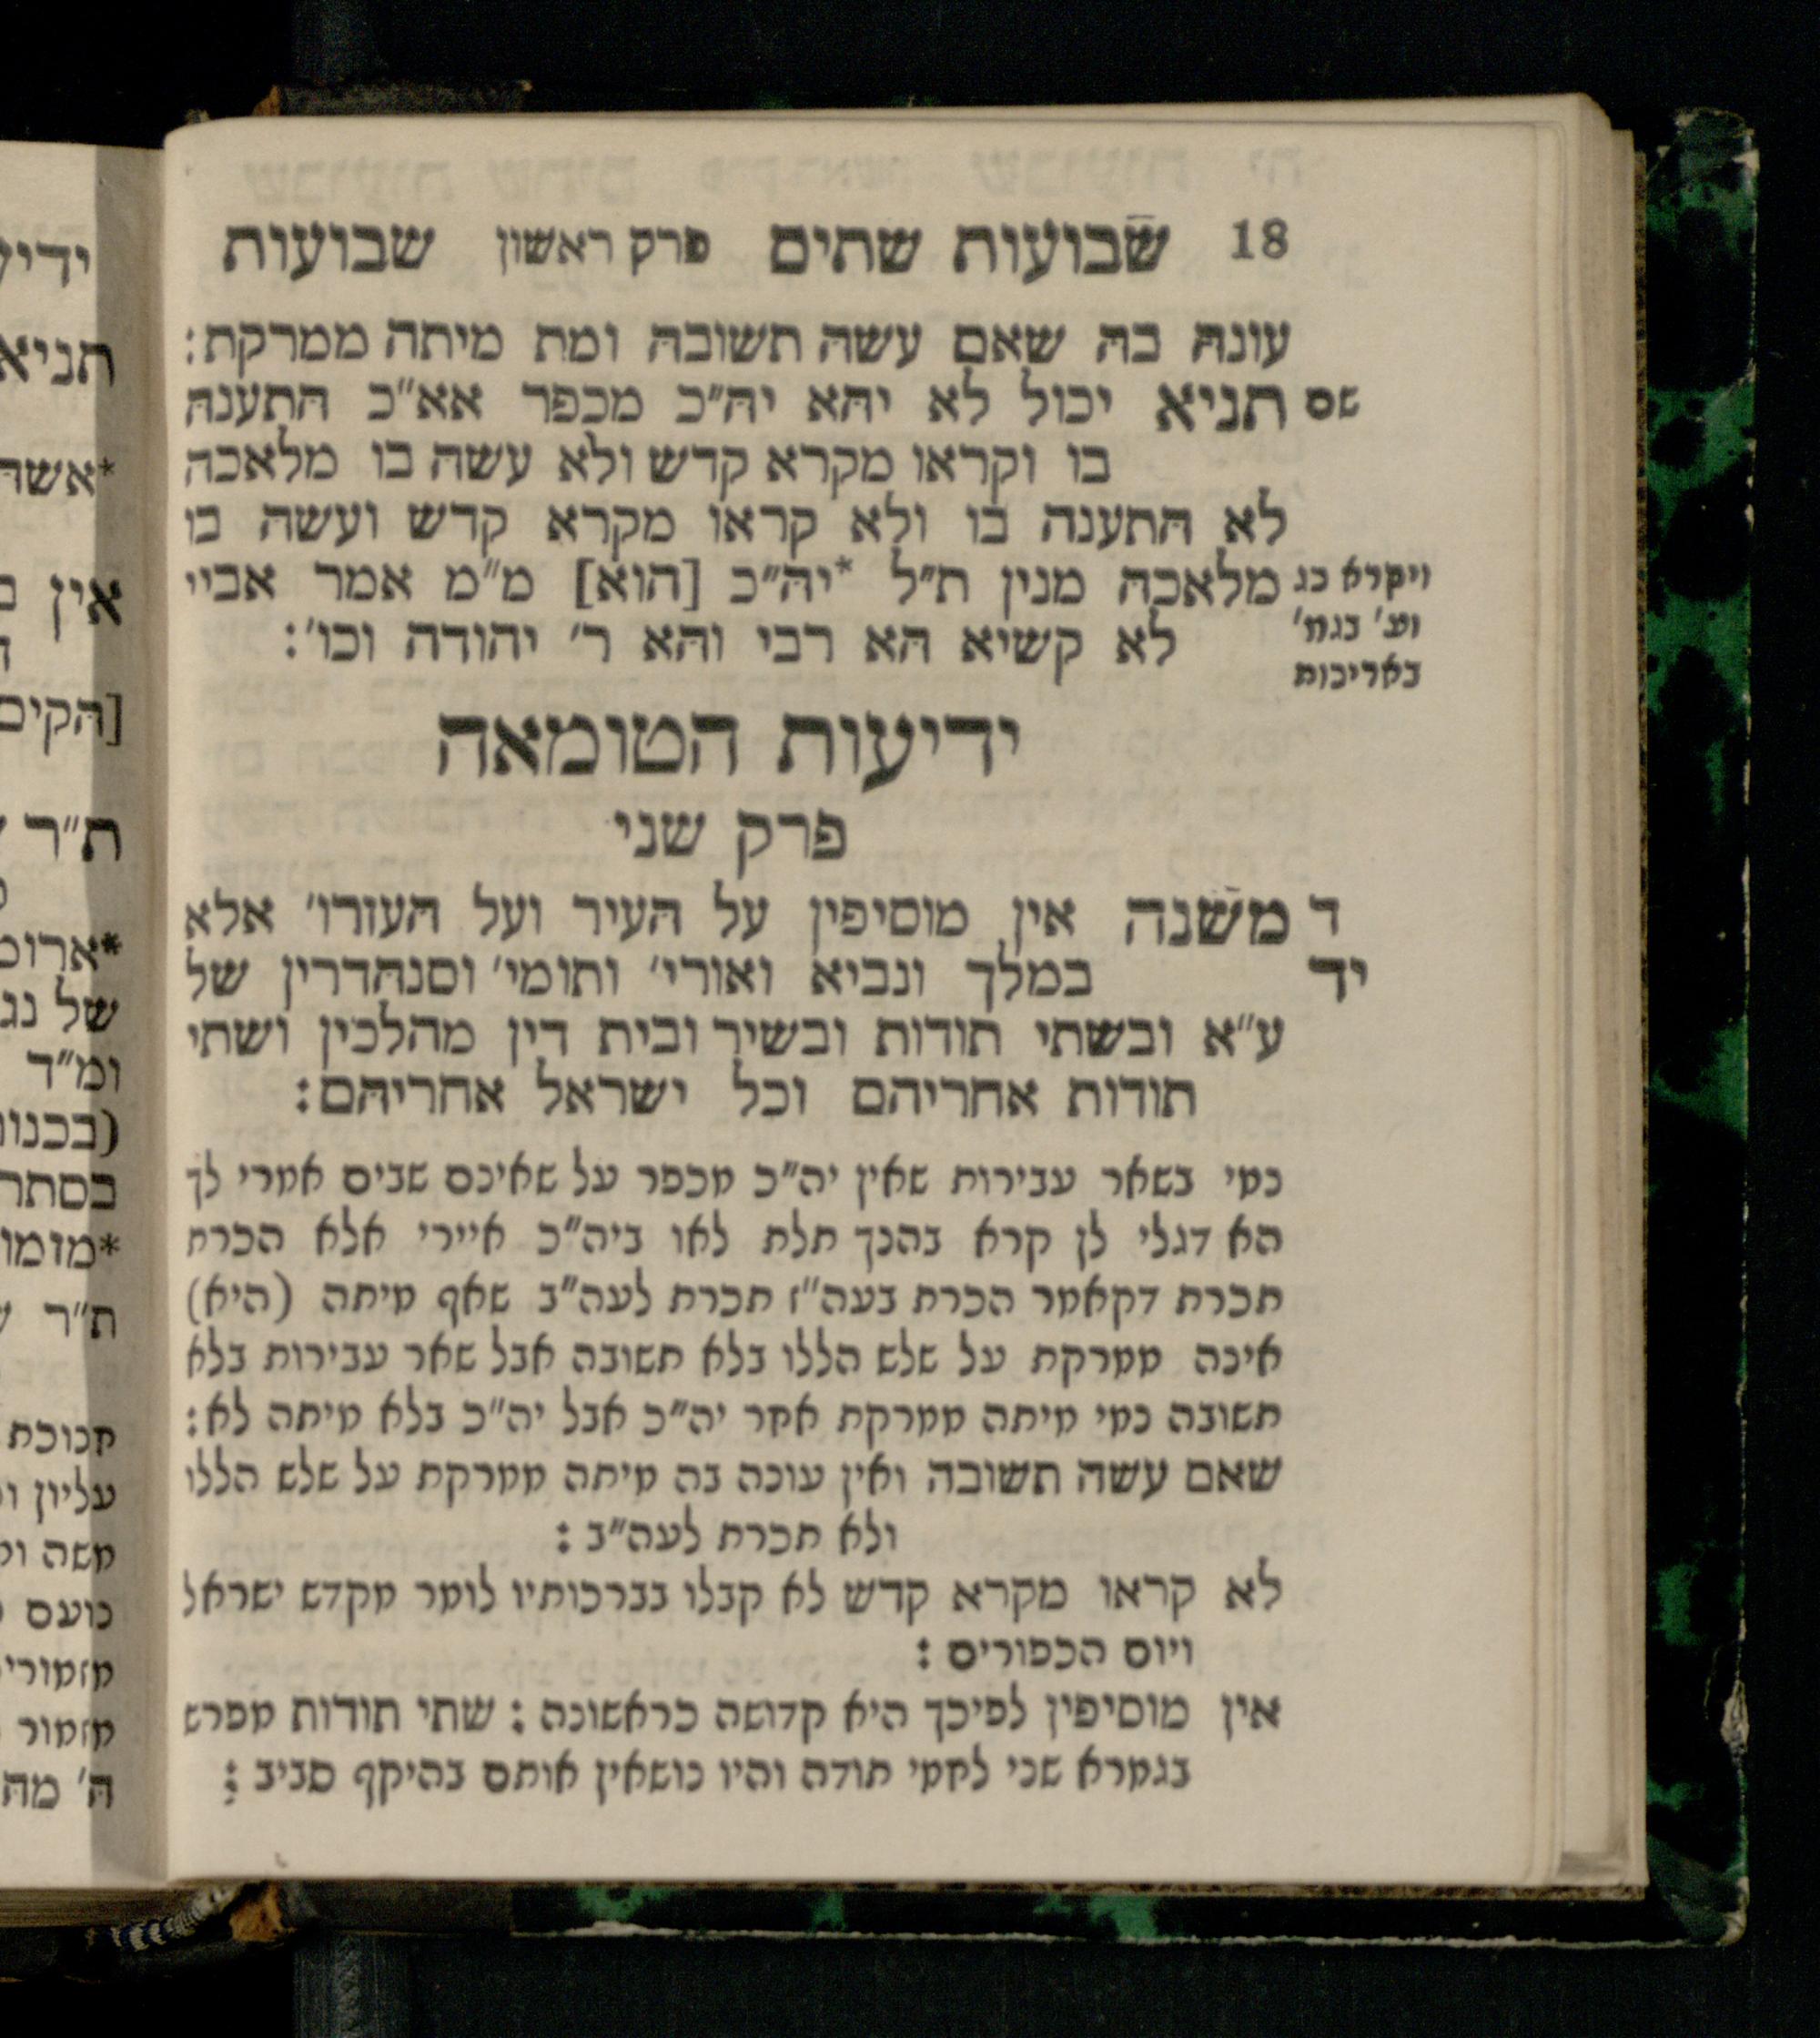 18 שבועות שתים פרק ראשון שבועות
עונה בה שאם עשה תשובה ומת מיתה ממרקת:
שם תניא יכול לא יהא יה״כ מכפר אא״כ התענה
בו וקראו מקרא קדש ולא עשה בו מלאכה
לא התענה בו ולא קראו מקרא קדש ועשה בו
ויקרא כג מלאכה מנין ת״ל *יה״כ [הוא] מ״מ אמר אביי
וע׳ בגמ׳ לא קשיא הא רבי והא ר׳ יהודה וכו׳:
באריכות
ידיעות הטומאה
פרק שני
ד משנה אין מוסיפין על העיר ועל העזרו׳ אלא
יד במלך ונביא ואורי׳ ותומי׳ וסנהדרין של
ע״א ובשתי תודות ובשיר ובית דין מהלכין ושתי
תודות אחריהם וכל ישראל אחריהם:
נמי בשאר עבירות שאין יה״כ מכפר על שאינם שבים אמרי לך
הא דגלי לן קרא בהנך תלת לאו ביה״כ איירי אלא הכרת
תכרת דקאמר הכרת בעה״ז תכרת לעה״ב שאף מיתה (היא)
אינה ממרקת על שלש הללו בלא תשובה אבל שאר עבירות בלא
תשובה נמי מיתה ממרקת אמר יה״כ אבל יה״כ בלא מיתה לא:
שאם עשה תשובה ואין עונה בה מיתה ממרקת על שלש הללו
ולא תכרת לעה״ב:
לא קראו מקרא קדש לא קבלו בברכותיו לומר מקדש ישראל
ויום הכפורים:
אין מוסיפין לפיכך היא קדושה כראשונה: שתי תודות מפרש
בגמרא שני לחמי תודה והיו נושאין אותם בהיקף סביב: